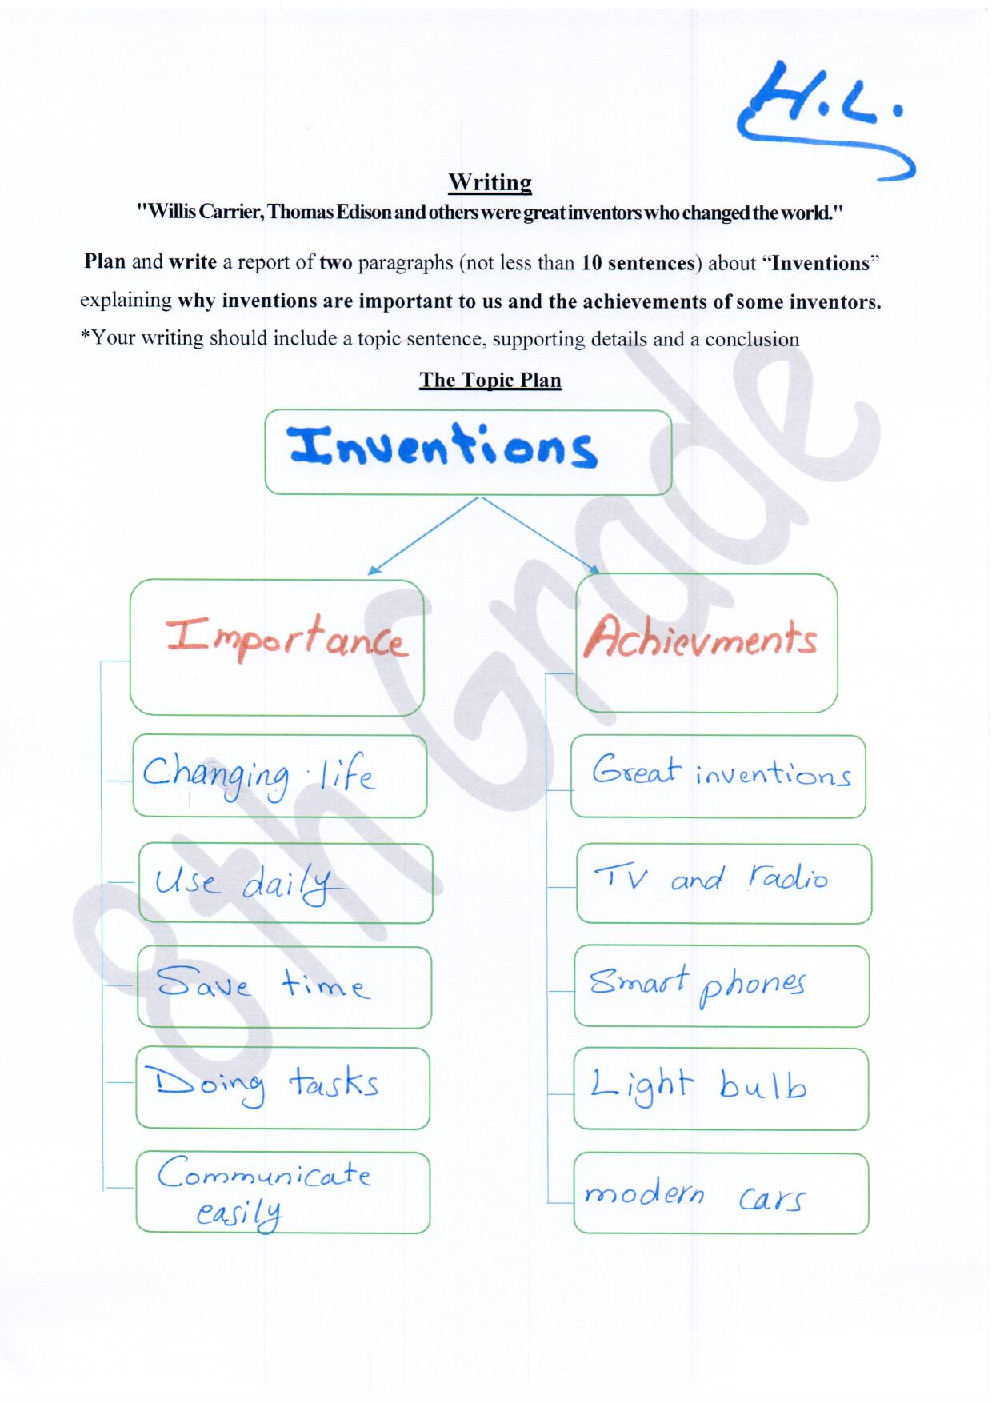 H.L.
Writing
"Willis Carrier, Thomas Edison and others were great inventors who changed the world."
Plan and write a report of two paragraphs (not less than 10 sentences) about “Inventions”
explaining why inventions are important to us and the achievements of some inventors.
*Your writing should include a topic sentence, supporting details and a conclusion
The Topic Plan
Inventions
Importance
Changing life
Use daily
Save time
Doing tasks
Communicate
easily
Achievments
Great inventions
TV and radio
Smart phones
Light bulb
modern cars
8th Grade